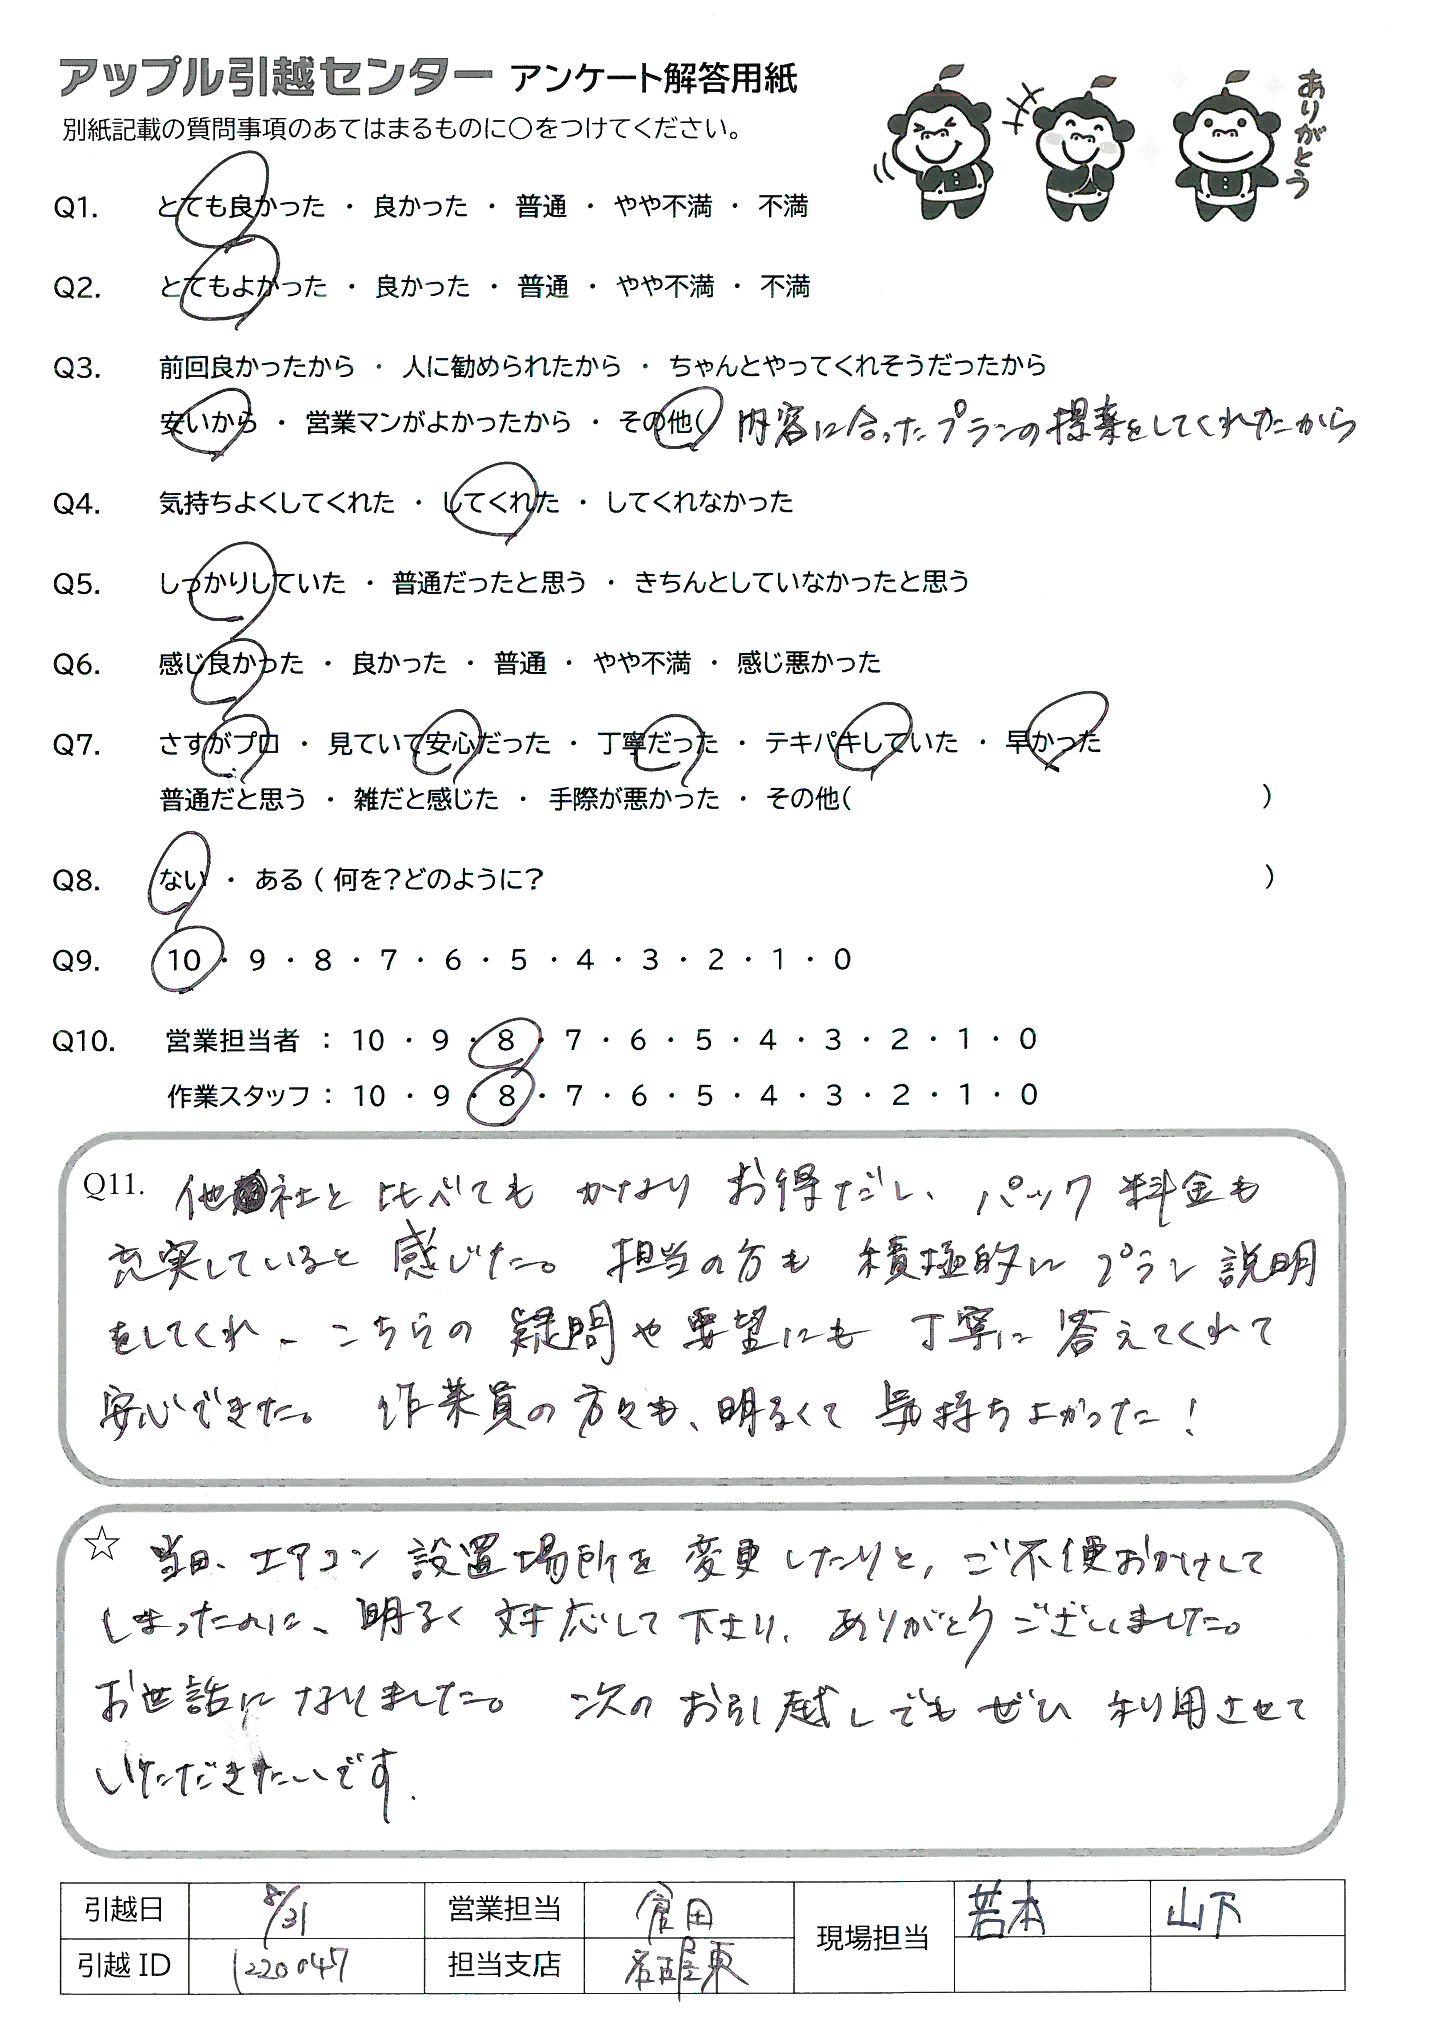 アップル引越センター アンケート解答用紙
別紙記載の質問事項のあてはまるものに○をつけてください。
ありがとう
Q1. とても良かった ・ 良かった ・ 普通 ・ やや不満 ・ 不満
Q2. とてもよかった ・ 良かった ・ 普通 ・ やや不満 ・ 不満
Q3. 前回良かったから ・ 人に勧められたから ・ ちゃんとやってくれそうだったから
安いから ・ 営業マンがよかったから ・ その他( 内容に合ったプランの提案をしてくれたから
Q4. 気持ちよくしてくれた ・ してくれた ・ してくれなかった
Q5. しっかりしていた ・ 普通だったと思う ・ きちんとしていなかったと思う
Q6. 感じ良かった ・ 良かった ・ 普通 ・ やや不満 ・ 感じ悪かった
Q7. さすがプロ ・ 見ていて安心だった ・ 丁寧だった ・ テキパキしていた ・ 早かった
普通だと思う ・ 雑だと感じた ・ 手際が悪かった ・ その他( )
Q8. ない ・ ある ( 何を?どのように? )
Q9. 10 ・ 9 ・ 8 ・ 7 ・ 6 ・ 5 ・ 4 ・ 3 ・ 2 ・ 1 ・ 0
Q10. 営業担当者 : 10 ・ 9 ・ 8 ・ 7 ・ 6 ・ 5 ・ 4 ・ 3 ・ 2 ・ 1 ・ 0
作業スタッフ : 10 ・ 9 ・ 8 ・ 7 ・ 6 ・ 5 ・ 4 ・ 3 ・ 2 ・ 1 ・ 0
Q11. 他社と比べてもかなりお得だし、パック料金も
充実していると感じた。担当の方も積極的にプラン説明
をしてくれ、こちらの疑問や要望にも丁寧に答えてくれて
安心できた。作業員の方々も、明るくて気持ちよかった!
☆ 当日、エアコン設置場所を変更したりと、ご不便おかけして
しまったのに、明るく対応して下さり、ありがとうございました。
お世話になりました。次のお引越しでもぜひ利用させて
いただきたいです.
引越日 8/31 営業担当 倉田 現場担当 若本 山下
引越ID 1220047 担当支店 名古屋東